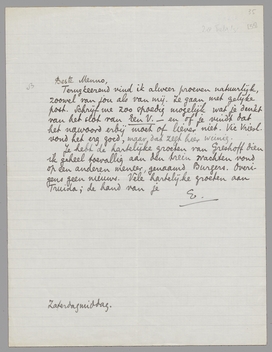 Beste Menno,
Terugkeerend vind ik alweer proeven natuurlijk,
zoowel van jou als van mij. Ze gaan met gelijke
post. Schrijf me zoo spoedig mogelijk wat je denkt
van het slot van Een V. – en of je vindt dat
het nawoord erbij moet of liever niet. Vic Vriesl.
vond het erg goed, maar dat zegt heel weinig.
Je hebt de hartelijke groeten van Greshoff dien
ik geheel toevallig aan den trein wachten vond
op een anderen meneer, genaamd Burgers. Overi-
gens geen nieuws. Vele hartelijke groeten aan
Truida; de hand van je
E.
Zaterdagmiddag.